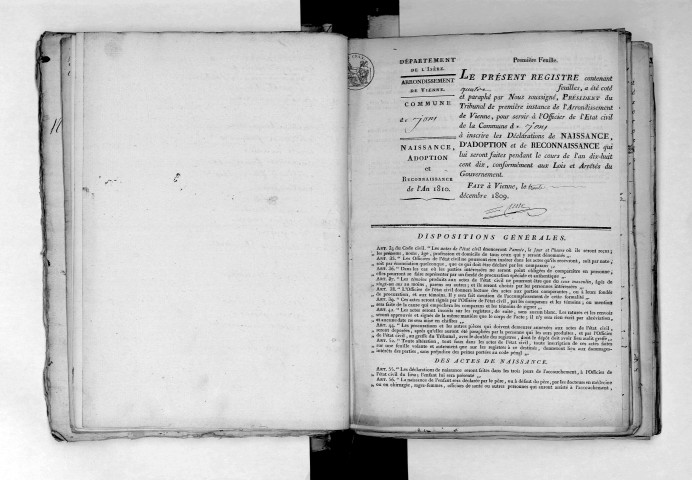 DÉPARTEMENT
DE L'ISÈRE.
ARRONDISSEMENT
DE VIENNE.
COMMUNE
de
NAISSANCE,
ADOPTION
et
RECONNAISSANCE
de l'An 1810.
Première Feuille.
LE PRÉSENT REGISTRE contenant
quatre feuilles, a été coté
et paraphé par Nous soussigné, PRÉSIDENT du
Tribunal de première instance de l'Arrondissement
de Vienne, pour servir à l'Officier de l'Etat civil
de la Commune de
à inscrire les Déclarations de NAISSANCE,
D'ADOPTION et de RECONNAISSANCE qui
lui seront faites pendant le cours de l'an dix-huit
cent dix, conformément aux Lois et Arrêtés du
Gouvernement.
FAIT à Vienne, le
décembre 1809.
DISPOSITIONS GÉNÉRALES.
ART. 34 du Code civil. "Les actes de l'état civil énonceront l'année, le jour et l'heure où ils seront reçus;
„ les prénoms, noms, âge, profession et domicile de tous ceux qui y seront dénommés „
ART. 35. "Les Officiers de l'état civil ne pourront rien insérer dans les actes qu'ils recevront, soit par note,
„ soit par énonciation quelconque, que ce qui doit être déclaré par les comparans „
ART. 36. "Dans les cas où les parties intéressées ne seront point obligées de comparaître en personne,
„ elles pourront se faire représenter par un fondé de procuration spéciale et authentique „
ART. 37. "Les témoins produits aux actes de l'état civil ne pourront être que du sexe masculin, âgés de
„ vingt-un ans au moins, parens ou autres; et ils seront choisis par les personnes intéressées „
ART. 38. "L'Officier de l'état civil donnera lecture des actes aux parties comparantes, ou à leur fondé
„ de procuration, et aux témoins. Il y sera fait mention de l'accomplissement de cette formalité „
ART. 39. "Ces actes seront signés par l'Officier de l'état civil, par les comparans et les témoins; ou mention
„ sera faite de la cause qui empêchera les comparans et les témoins de signer „
ART. 42. "Les actes seront inscrits sur les registres, de suite, sans aucun blanc. Les ratures et les renvois
„ seront approuvés et signés de la même manière que le corps de l'acte; il n'y sera rien écrit par abréviation,
„ et aucune date ne sera mise en chiffres „
ART. 44. "Les procurations et les autres pièces qui doivent demeurer annexées aux actes de l'état civil,
„ seront déposées, après qu'elles auront été paraphées par la personne qui les aura produites, et par l'Officier
„ de l'état civil, au greffe du Tribunal, avec le double des registres, dont le dépôt doit avoir lieu audit greffe „
ART. 52. "Toute altération, tout faux dans les actes de l'état civil, toute inscription de ces actes faite
„ sur une feuille volante et autrement que sur les registres à ce destinés, donneront lieu aux dommages-
„ intérêts des parties, sans préjudice des peines portées au code pénal „
DES ACTES DE NAISSANCE.
ART. 55. "Les déclarations de naissance seront faites dans les trois jours de l'accouchement, à l'Officier de
„ l'état civil du lieu; l'enfant lui sera présenté „
ART. 56. "La naissance de l'enfant sera déclarée par le père, ou à défaut du père, par les docteurs en médecine
„ ou en chirurgie, sages-femmes, officiers de santé ou autres personnes qui auront assisté à l'accouchement,